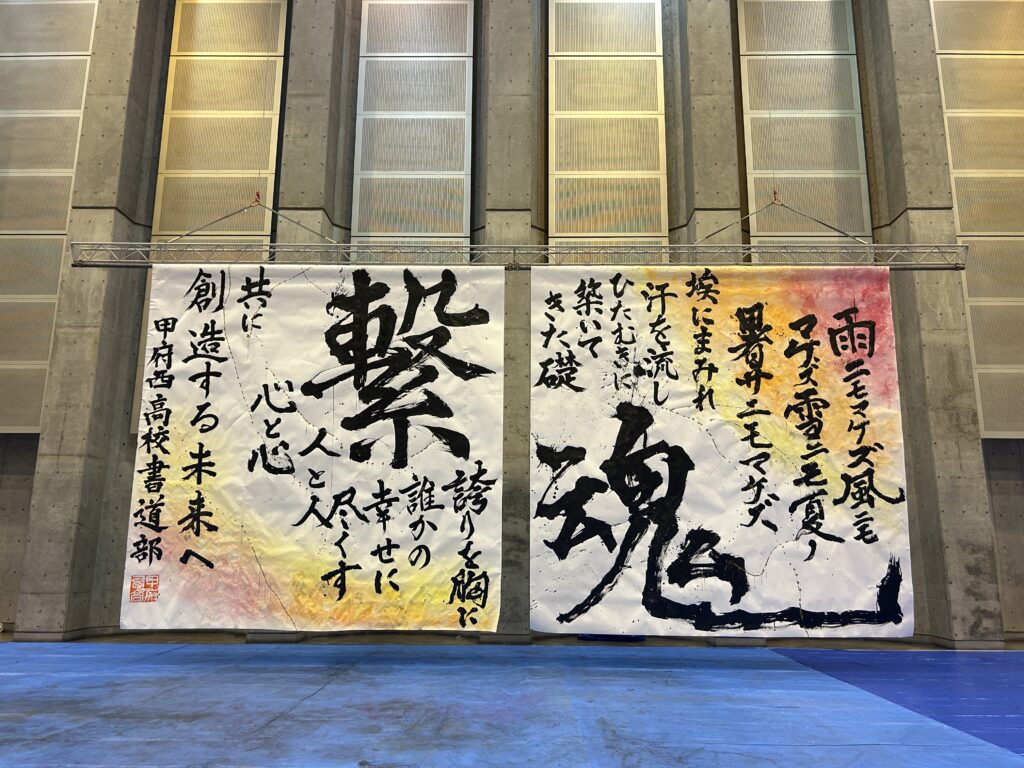 雨ニモマケズ風ニモ
マケズ雪ニモ夏ノ
暑サニモマケズ
埃にまみれ
汗を流し
ひたむきに
築いて
きた礎
魂
繋
誇りを胸に
誰かの
幸せに
尽くす
人と人
心と心
共に
創造する未来へ
甲府西高校書道部